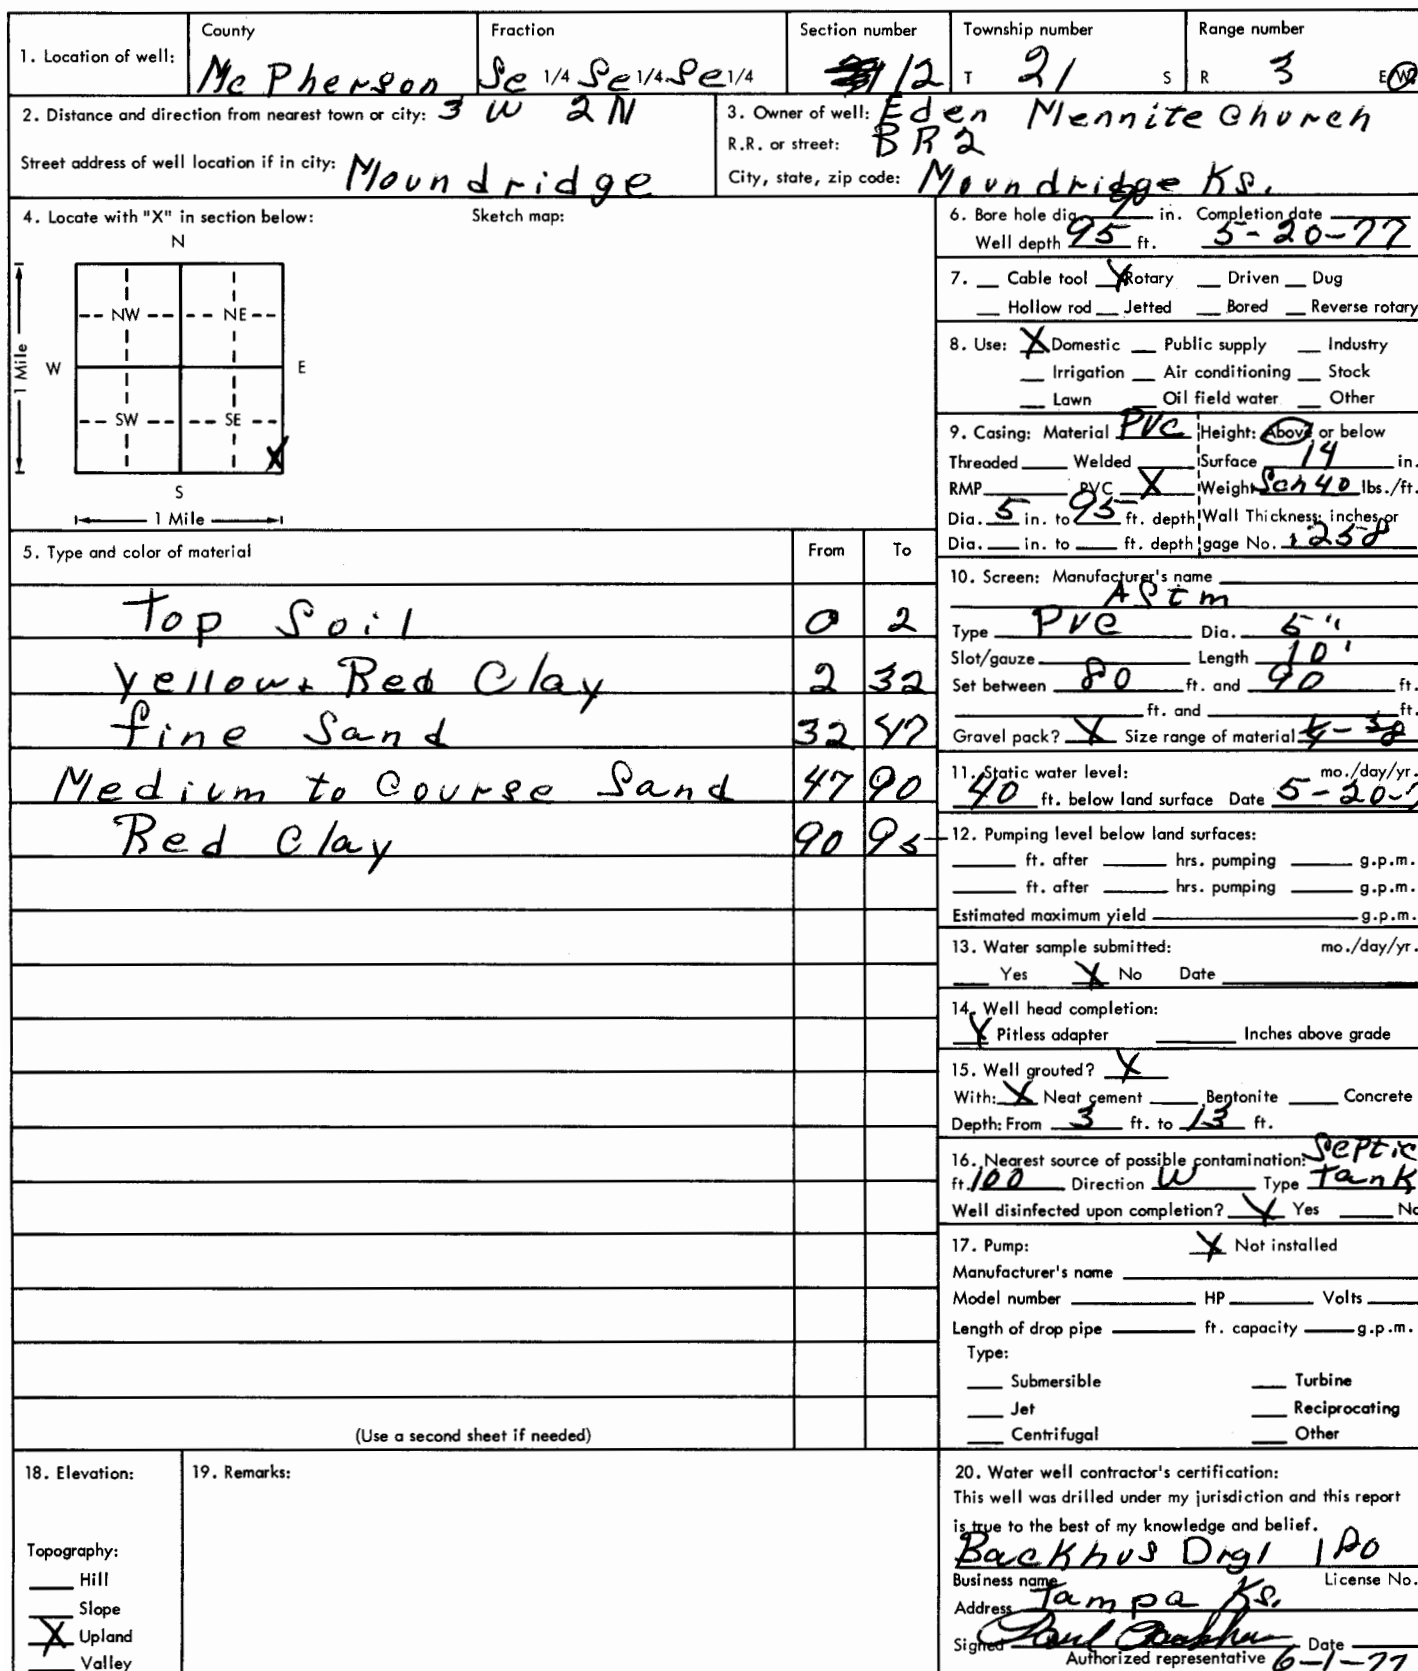 County Fraction Section number Township number Range number
1. Location of well: Mc Pherson Se 1/4 Se 1/4 Se 1/4 12 T 21 S R 3 E W
2. Distance and direction from nearest town or city: 3 W 2 N
Street address of well location if in city: Moundridge
3. Owner of well: Eden Mennite Church
R.R. or street: BR2
City, state, zip code: Moundridge Ks.
4. Locate with "X" in section below: Sketch map:
N
NW NE
W E
SW SE
X
S
1 Mile
1 Mile
5. Type and color of material From To
Top Soil 0 2
Yellow + Red Clay 2 32
fine Sand 32 47
Medium to Course Sand 47 90
Red Clay 90 95
(Use a second sheet if needed)
6. Bore hole dia. in. Completion date
Well depth 95 ft. 5-20-77
7. Cable tool X Rotary Driven Dug
Hollow rod Jetted Bored Reverse rotary
8. Use: X Domestic Public supply Industry
Irrigation Air conditioning Stock
Lawn Oil field water Other
9. Casing: Material PVC Height: Above or below
Threaded Welded Surface 14 in.
RMP PVC X Weight Sch 40 lbs./ft.
Dia. 5 in. to 95 ft. depth Wall Thickness: inches or
Dia. in. to ft. depth gage No. .258
10. Screen: Manufacturer's name
AStm
Type PVC Dia. 5"
Slot/gauze Length 10'
Set between 80 ft. and 90 ft.
ft. and ft.
Gravel pack? X Size range of material
11. Static water level: mo./day/yr.
40 ft. below land surface Date 5-20-
12. Pumping level below land surfaces:
ft. after hrs. pumping g.p.m.
ft. after hrs. pumping g.p.m.
Estimated maximum yield g.p.m.
13. Water sample submitted: mo./day/yr.
Yes X No Date
14. Well head completion:
X Pitless adapter Inches above grade
15. Well grouted? X
With: X Neat cement Bentonite Concrete
Depth: From 3 ft. to 13 ft.
16. Nearest source of possible contamination: Septic
ft. 100 Direction W Type Tank
Well disinfected upon completion? X Yes No
17. Pump: X Not installed
Manufacturer's name
Model number HP Volts
Length of drop pipe ft. capacity g.p.m.
Type:
Submersible Turbine
Jet Reciprocating
Centrifugal Other
18. Elevation:
Topography:
Hill
Slope
X Upland
Valley
19. Remarks:
20. Water well contractor's certification:
This well was drilled under my jurisdiction and this report
is true to the best of my knowledge and belief.
Backhus Drgl
Business name License No.
Address Tampa Ks.
Signed Date
Authorized representative 6-1-77